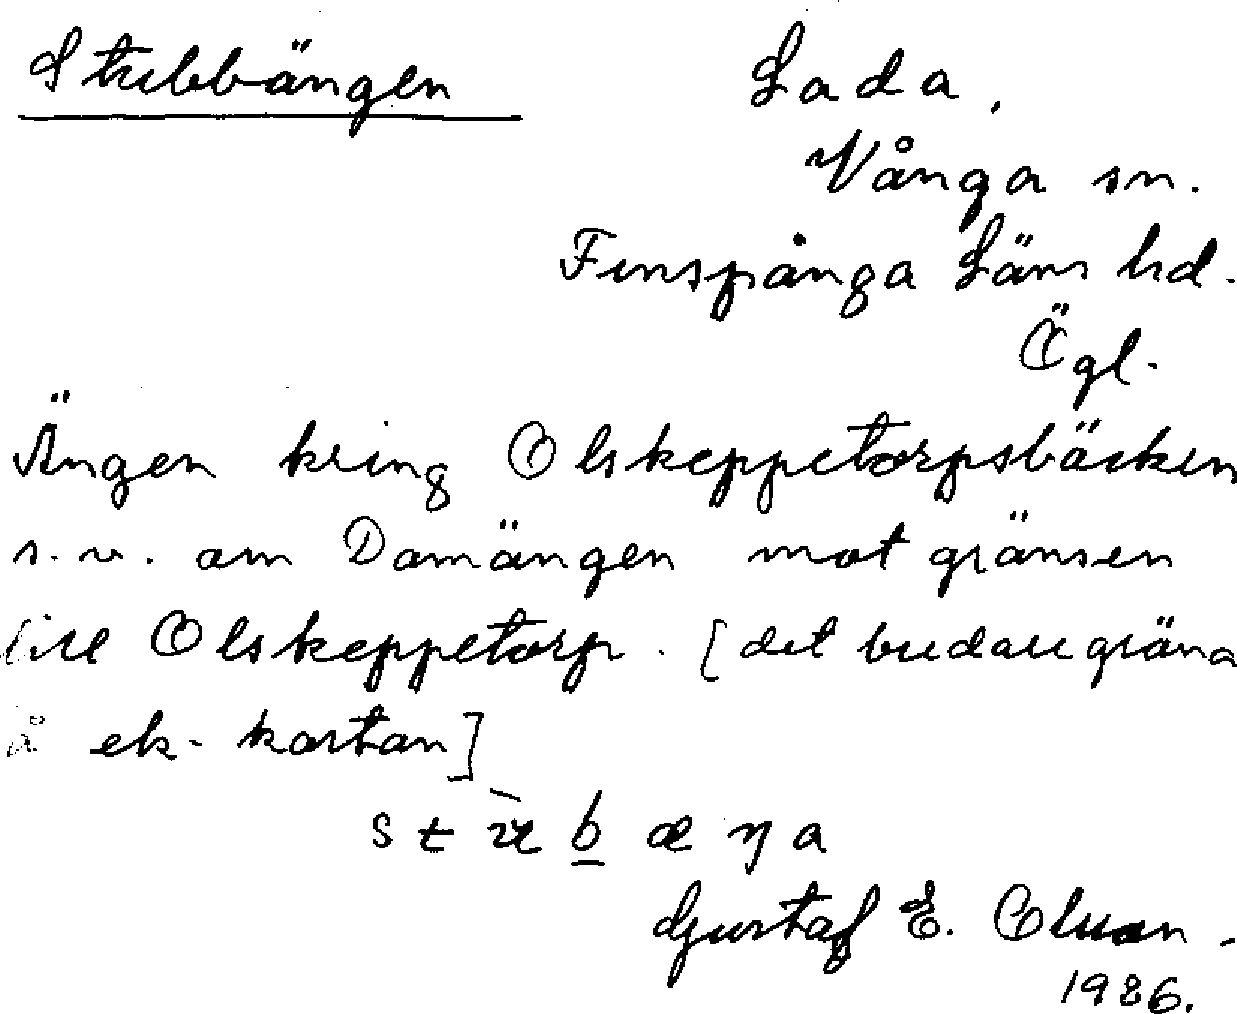 Stubbängen
Lada.
Vånga sn.
Finspånga Läns hd.
Ögl.
Ängen kring Olskeppetorpsbäcken
s.v. om Domängen mot gränsen
till Olskeppetorp. [det bredare gröna
å ek-kartan]
Gustaf E. Olsson.
1986.